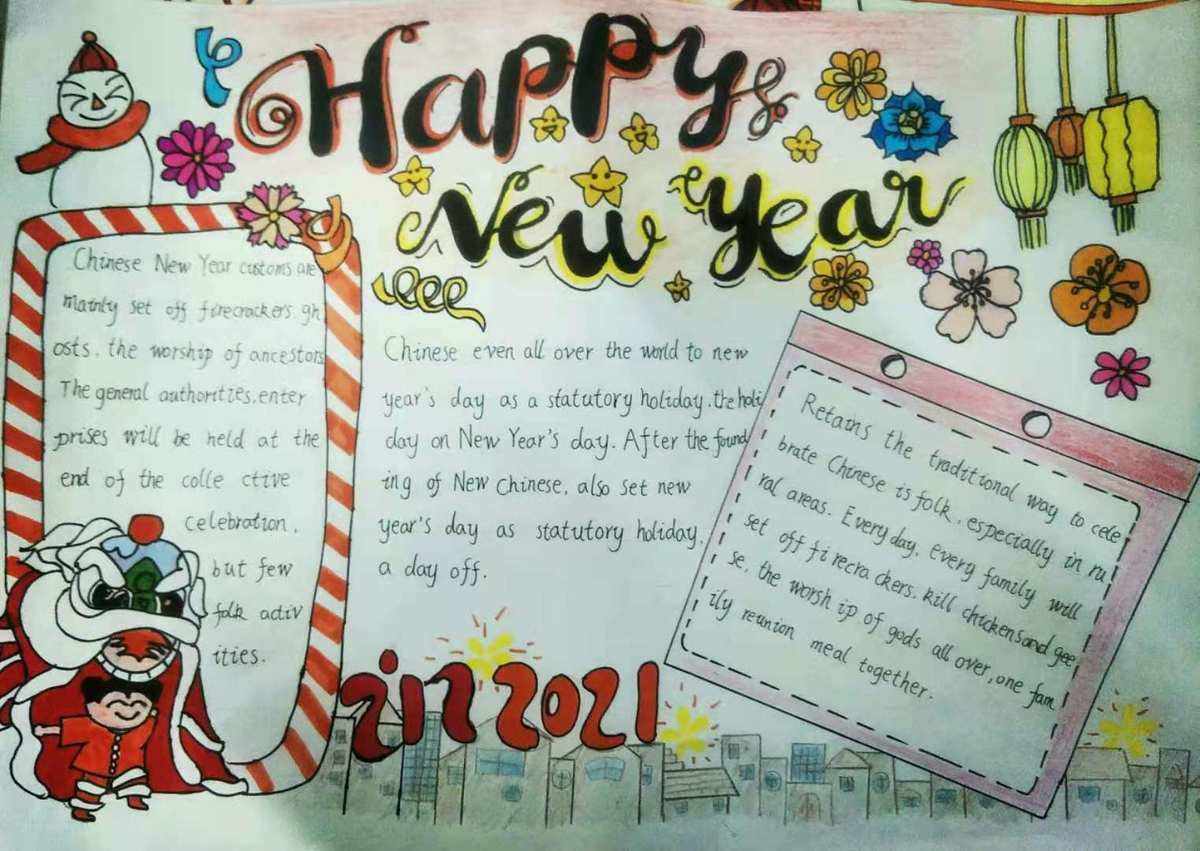 Happy
New Year
Chinese New Year customs are
mainly set off firecrackers. gh
osts. the worship of ancestors
The general authorities. enter
prises will be held at the
end of the colle ctive
celebration.
but few
folk activ
ities.
Chinese even all over the world to new
year's day as a statutory holiday. the holi
day on New Year's day. After the found
ing of New Chinese, also set new
year's day as statutory holiday,
a day off.
Retains the traditional way to cele
brate Chinese is folk, especially in ru
ral areas. Every day, every family will
set off firecra ckers. kill chickens and gee
se, the worsh ip of gods all over, one fam
ily reunion meal together.
in 2021